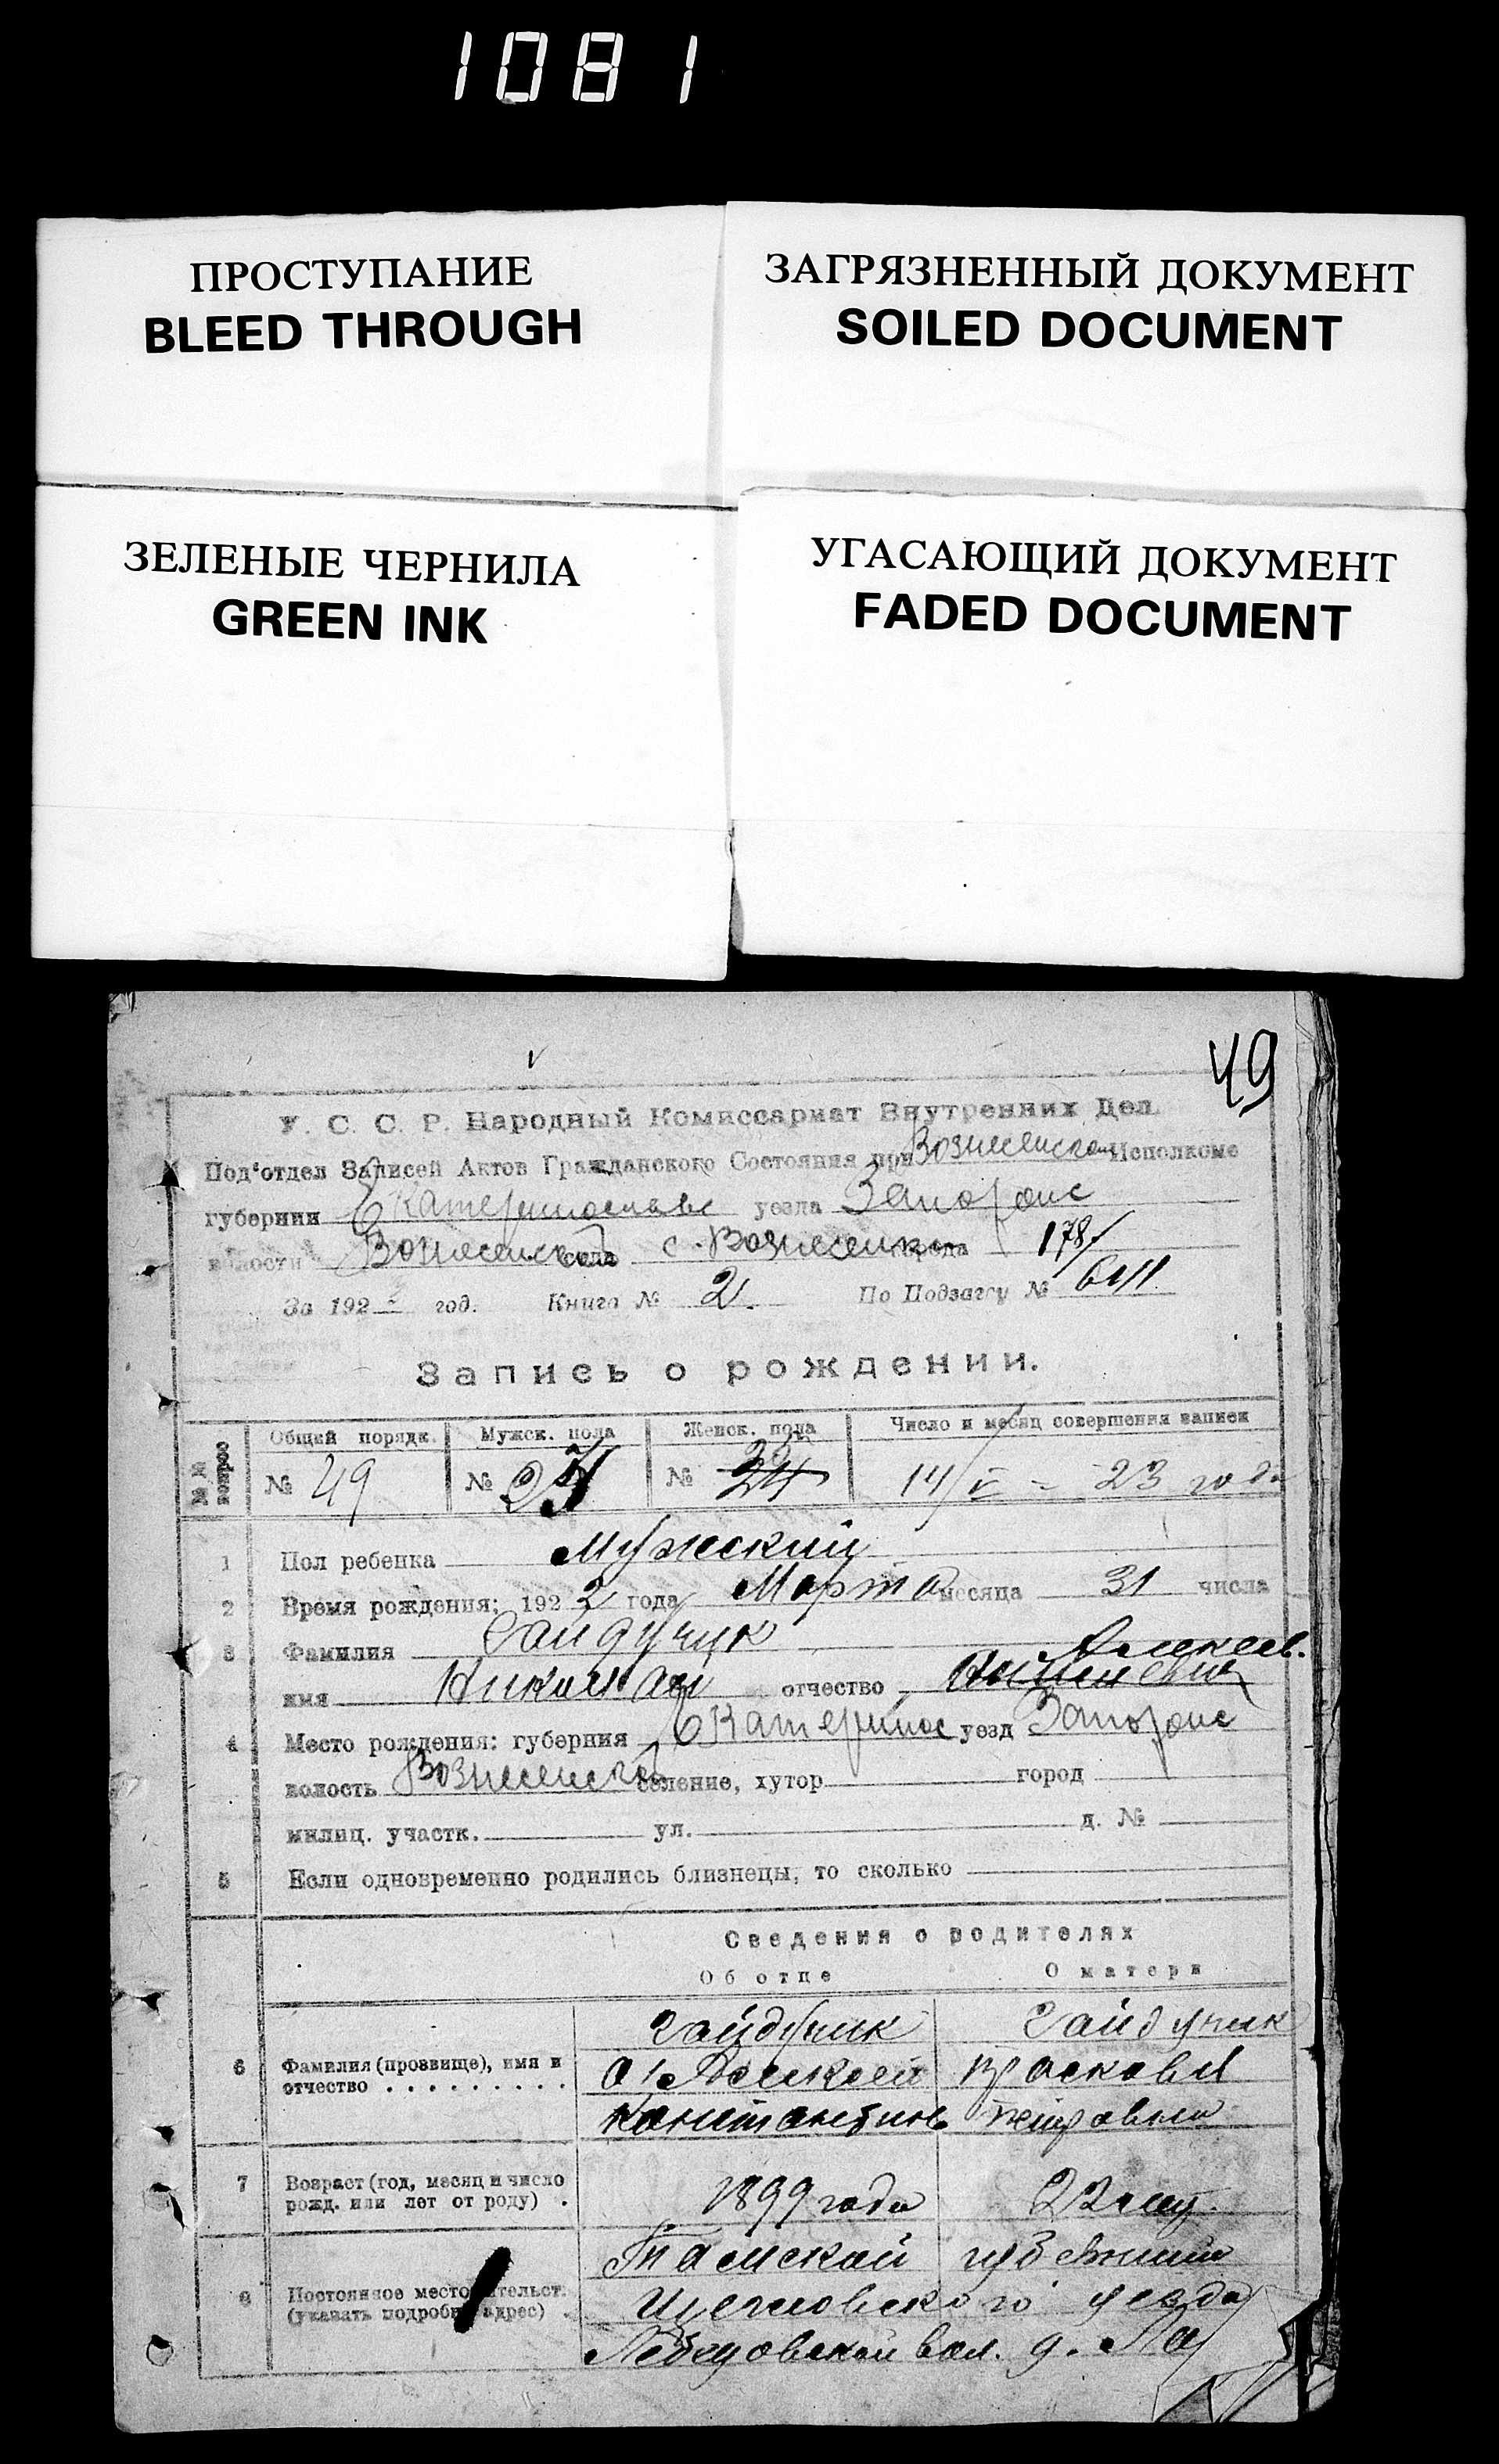 1081
ПРОСТУПАНИЕ
BLEED THROUGH
ЗАГРЯЗНЕННЫЙ ДОКУМЕНТ
SOILED DOCUMENT
ЗЕЛЕНЫЕ ЧЕРНИЛА
GREEN INK
УГАСАЮЩИЙ ДОКУМЕНТ
FADED DOCUMENT
49
У. С. С. Р. Народный Комиссариат Внутренних Дел.
Под'отдел Записей Актов Гражданского Состояния при Вознесенском Исполкоме
губернии Екатеринославс уезда Запорожс
волости Вознесенской села с. Вознесенка города 178/
За 192 год. Книга № 2. По Подзагсу №
Запись о рождении.
№№ вопрос Общий порядк. Мужск. пола Женск. пола Число и месяц совершения записи
№ 49 № № 24 14/V - 23 года
1 Пол ребенка Мужский
2 Время рождения: 192 2 года Марта месяца 31 числа
3 Фамилия Гайдучик
Алексеев.
имя Николай отчество
4 Место рождения: губерния Екатеринос уезд Запорожс
волость Вознесенской селение, хутор город
милиц. участк. ул. д. №
5 Если одновременно родились близнецы, то сколько
Сведения о родителях
Об отце О матери
Гайдучик Гайдучик
6 Фамилия (прозвище), имя и отчество . . . . . . . . . Алексей Прасковья
Константинов Петровна
7 Возраст (год, месяц и число рожд. или лет от роду) . 1899 года 22 лет.
Томской губернии
8 Постоянное местожительст. (указать подробный адрес) . Щегловского уезда
вол. д.